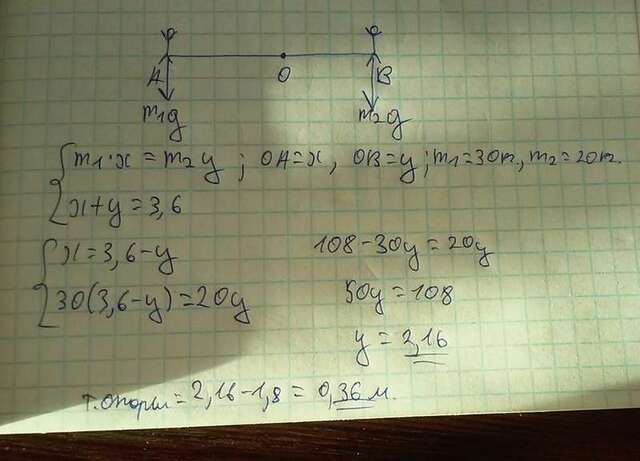 A O B
m₁g m₂g
{ m₁·x = m₂y ; OA=x, OB=y; m₁=30кг, m₂=20кг.
x+y=3,6
{ x=3,6-y
30(3,6-y)=20y
108-30y=20y
50y=108
y=2,16
т.опоры=2,16-1,8=0,36м.